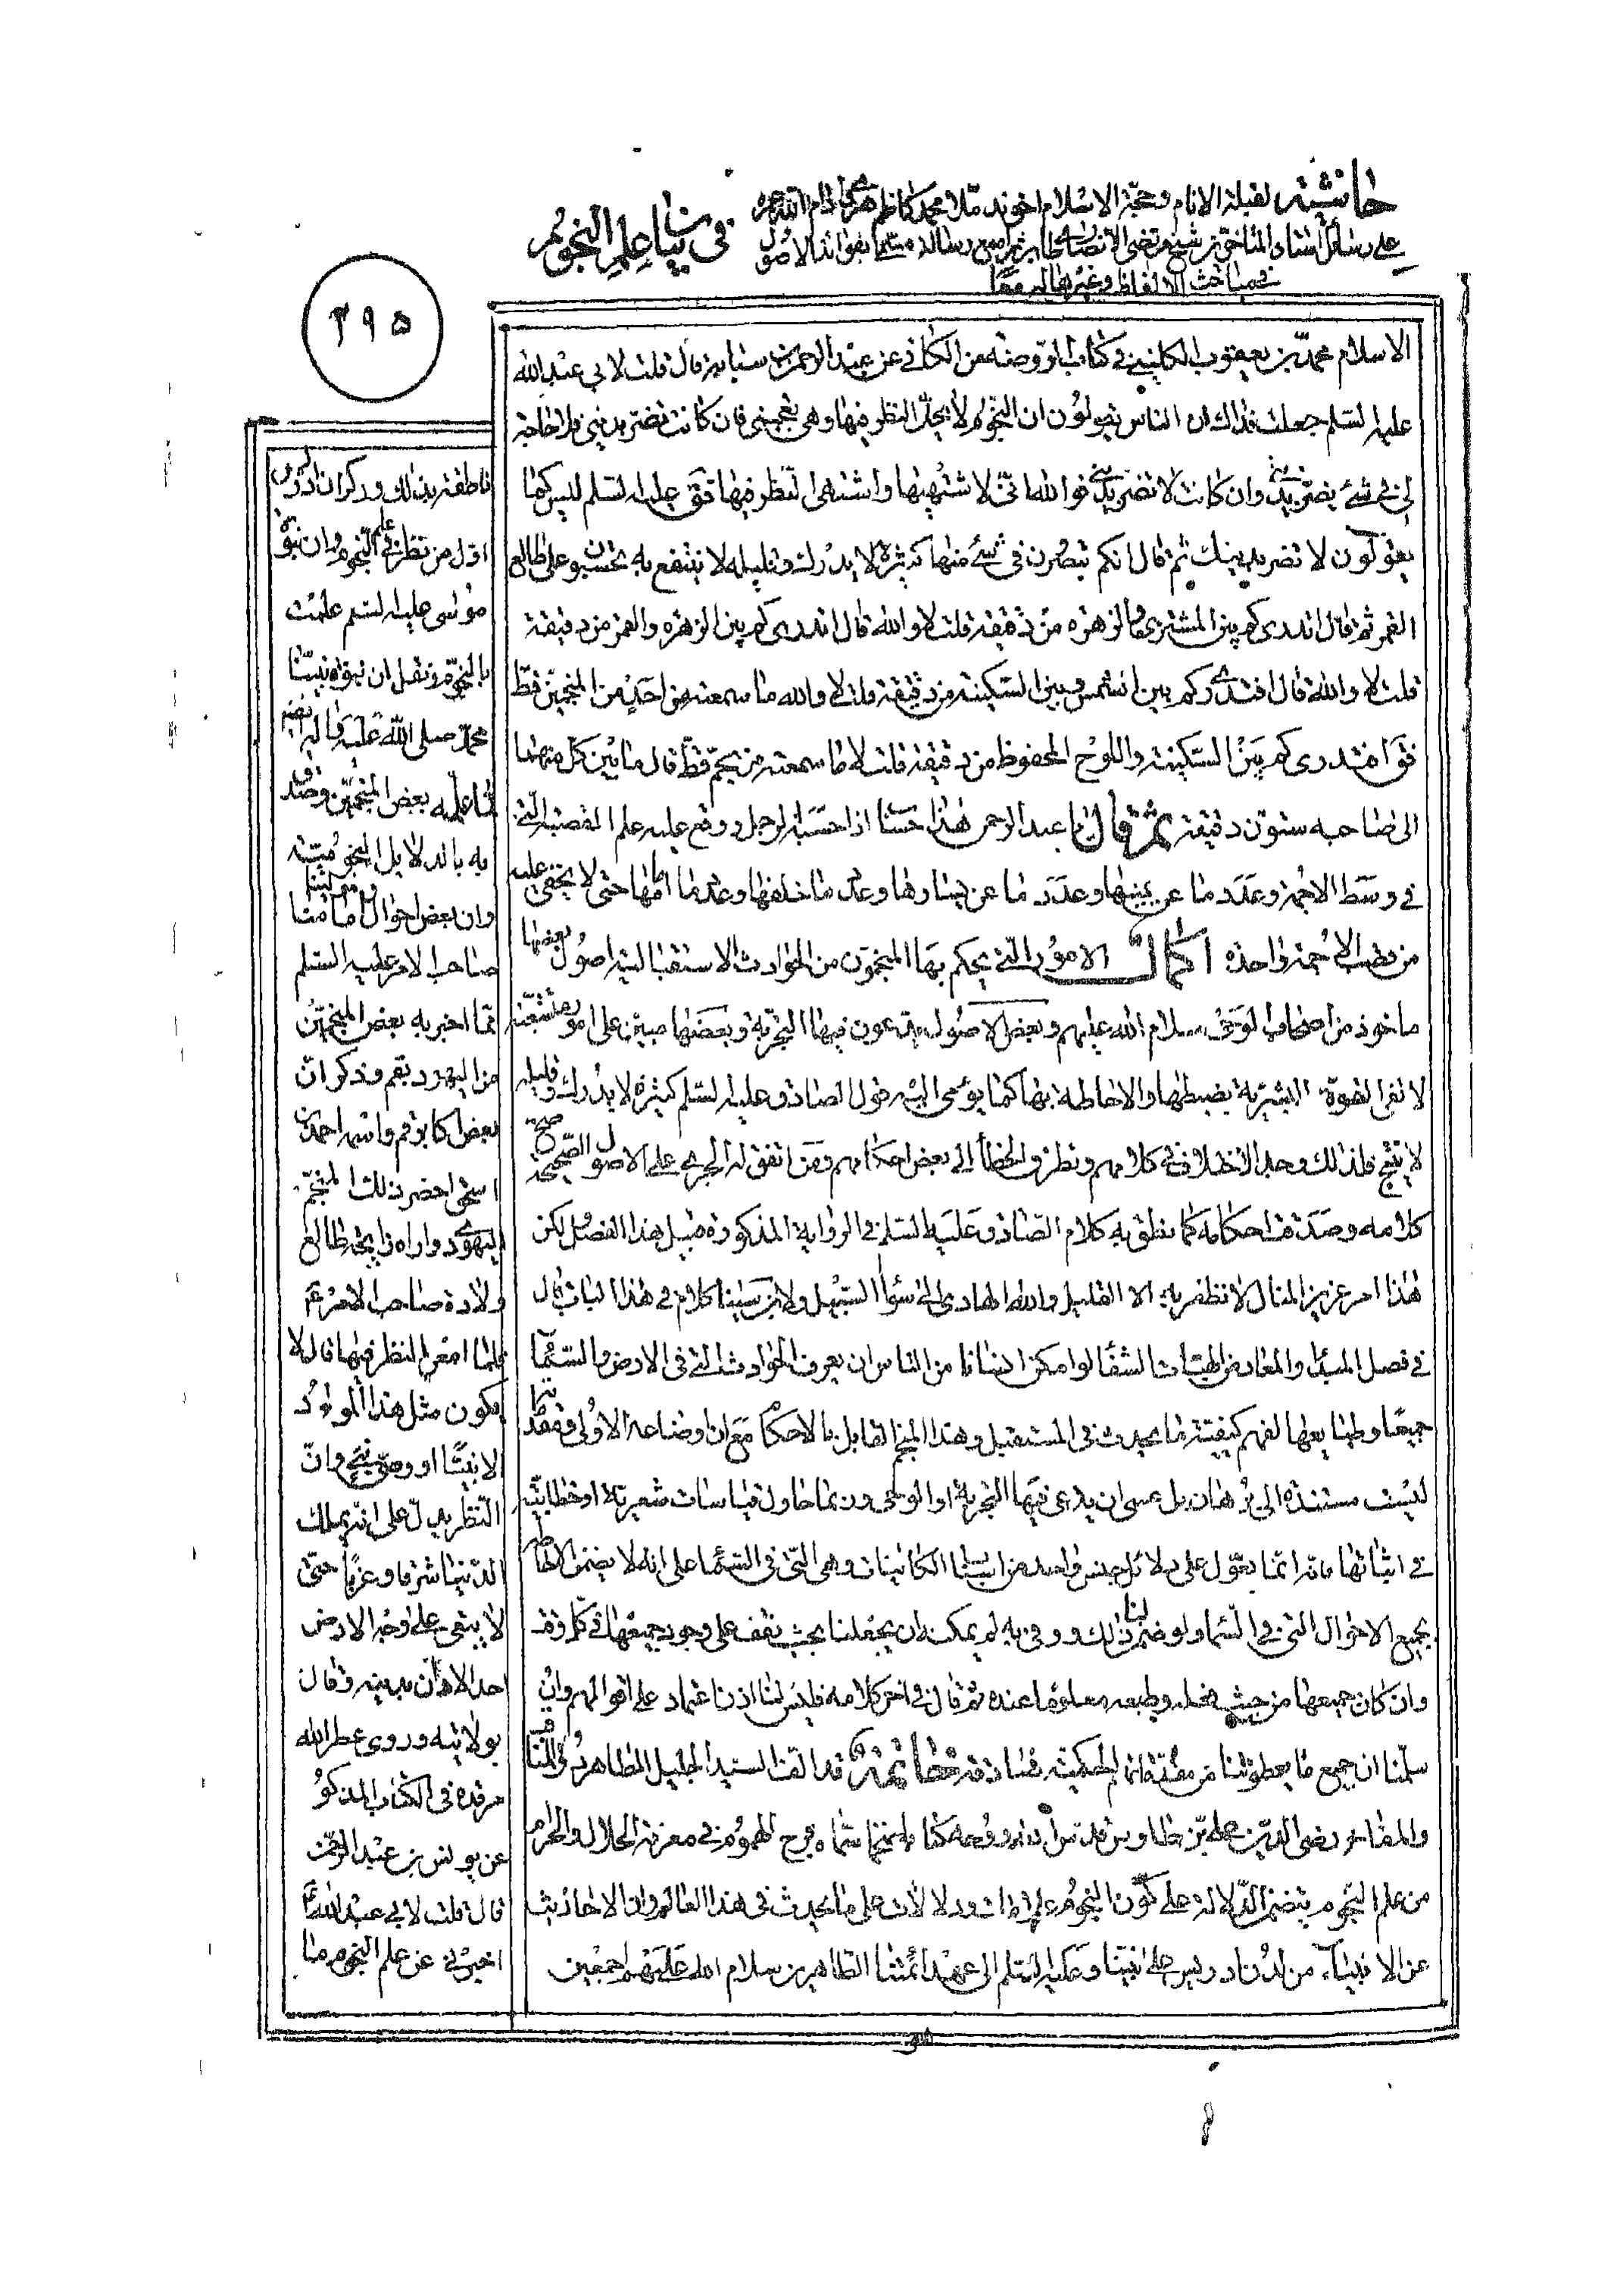 حاشیته لقبلة الانام و حجة الاسلام اخوند ملا محمد کاظم هروی دام الله عمره
علی رسائل استاد المتاخرین شیخ مرتضی الانصاری طاب ثراه مع رسالة مسمّاة بفوائد الاصول
فی مباحث الالفاظ و غیرها
فی بیان علم النجوم
۳۹۵
الاسلام محمد بن یعقوب الکلینی فی کتاب الروضة من الکافی عن عبد الرحمن بن سیابة قال قلت لابی عبد الله
علیه السلم جعلت فداک ان الناس یقولون ان النجوم لا یحلّ النظر فیها و هی تعجبنی فان کانت تضرّ بدینی فلا حاجة
لی فی شئ یضرّ بدینی وان کانت لا تضرّ بدینی فوالله انی لاشتهیها و اشتهی النظر فیها فق علیه السلم لیس کما
یقولون لا تضر بدینک ثم قال انکم تبصرون فی شئ منها کثیره لا یدرک و قلیله لا ینتفع به تحسبون علی طالع
القمر ثم قال اتدری کم بین المشتری و الزهره من دقیقة قلت لا والله قال اتدری کم بین الزهره و القمر من دقیقة
قلت لا والله قال افتدری کم بین الشمس و بین السکینة من دقیقة قلت لا والله ما سمعته من احد من المنجمین قطّ
فق افتدری کم بین السکینة و اللوح المحفوظ من دقیقة قلت لا ما سمعته من منجم قطّ قال ما بین کل منهما
الی صاحبه ستون دقیقة ثم قال یا عبد الرحمن هذا حساب اذا حسبه الرجل و وقع علیه علم القصبة التی
فی وسط الاجمة و عدد ما عن یمینها و عدد ما عن یسارها و عدد ما خلفها و عدد ما امامها حتی لا یخفی علیه
من قصب الاجمة واحدة اکمال الامور التی یحکم بها المنجمون من الحوادث الاستقبالیة اصول بعضها
ماخوذ من اصحاب الوحی سلام الله علیهم و بعض الاصول یدّعون فیها التجربة و بعضها مبتن علی امور متشعّبة
لا تفی القوة البشریة بضبطها و الاحاطة بها کما یومی الیه قول الصادق علیه السلم کثیره لا یدرک و قلیله
لا ینتج فلذلک وجد الاختلاف فی کلامهم و تطرق الخطأ الی بعض احکامهم و من اتفق له الجری علی الاصول الصحیحة صح
کلامه و صدقت احکامه کما نطق به کلام الصادق علیه السلم فی الروایة المذکورة قبیل هذا الفصل لکن
هذا امر عزیز المنال لا تظفر به الا القلیل و الله الهادی الی سواء السبیل و لابن سینا کلام فی هذا الباب قال
فی فصل المبدأ و المعاد من الهیات الشفا لو امکن انسانا من الناس ان یعرف الحوادث التی فی الارض و السماء
جمیعا و طبایعها لفهم کیفیة ما یحدث فی المستقبل و هذا المنجم القایل بالاحکام مع ان اوضاعه الاولی و مقدماته
لیست مستندة الی برهان بل عسی ان یدعی فیها التجربة او الوحی و ربما حاول قیاسات شعریة او خطابیة
فی اثباتها فانه انما یعوّل علی دلائل جنس واحد من اسباب الکائنات و هی التی فی السماء علی انه لا یضمن الاحاطة
بجمیع الاحوال التی فی السماء ولو ضمن لنا ذلک و وفی به لم یمکنه ان یجعلنا بحیث نقف علی وجود جمیعها فی کل وقت
وان کان جمیعها من حیث فعله و طبعه معلوما عنده ثم قال فی اخر کلامه فلیس لنا اذن اعتماد علی اقوالهم وان
سلمنا ان جمیع ما یعطونا من مقدماتهم الحکمیة صادقة خاتمة قد الّف السید الجلیل الطاهر ذو المناقب
والمفاخر رضی الدین علی بن طاوس قدس الله روحه کتابا ضخما سماه فرج المهموم فی معرفة الحلال و الحرام
من علم النجوم یتضمن الدلالة علی کون النجوم علامات و دلالات علی ما یحدث فی هذا العالم وان الاحادیث
عن الانبیاء من لدن ادریس علی نبیّنا و علیه السلم الی عهد ائمتنا الطاهرین سلام الله علیهم اجمعین
ناطقة بذلک و ذکر ان ادریس
اوّل من نظر فی علم النجوم وان نبوّة
موسی علیه السلم علمت
بالنجوم و نقل ان نبوة نبیّنا
محمد صلی الله علیه و اله ایضا
مما علمه بعض المنجمین و صدّق
به بالدلایل النجومیة
وان بعض احوال مولینا و امامنا
صاحب الامر علیه السلم
مما اخبر به بعض المنجمین
من الیهود بقم و ذکر ان
بعض اکابر قم و اسمه احمد بن
اسحق احضر ذلک المنجم
الیهودی و اراه زایجة طالع
ولادة صاحب الامر عم
فلما امعن النظر فیها قال لا
یکون مثل هذا المولود
الا نبیّا او وصیّ نبی وان
النظر یدل علی انه یملک
الدنیا شرقا و غربا حتی
لا یبقی علی وجه الارض
احد الا دان بدینه و قال
بولایته و روی عطر الله
مرقده فی الکتاب المذکور
عن یونس بن عبد الرحمن
قال قلت لابی عبد الله ع
اخبرنی عن علم النجوم ما
هو